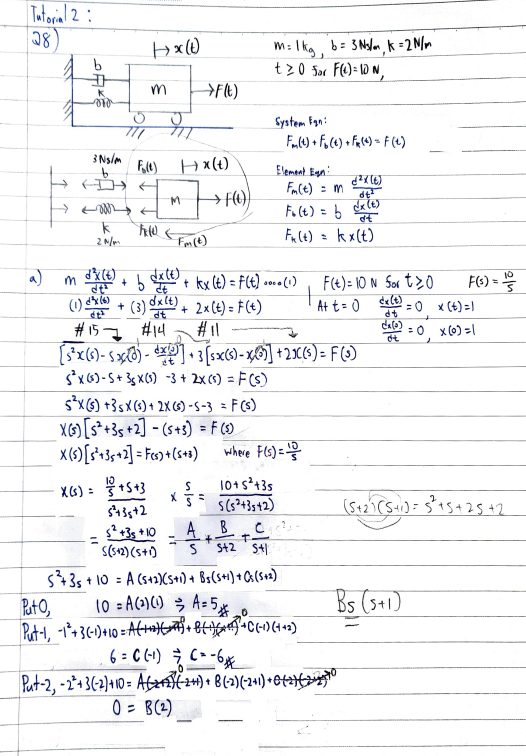 Tutorial 2 :
Q8)
x(t)
m = 1 kg, b = 3 Ns/m, k = 2 N/m
b
t ≥ 0 for F(t) = 10 N,
k
m
F(t)
System Eqn:
Fm(t) + Fb(t) + Fk(t) = F(t)
3 Ns/m
Fb(t)
x(t)
b
Element Eqn:
m
F(t)
Fm(t) = m d²x(t)/dt²
Fb(t) = b dx(t)/dt
k
Fk(t)
2 N/m
Fm(t)
Fk(t) = k x(t)
a) m d²x(t)/dt² + b dx(t)/dt + kx(t) = F(t) ....(1)
F(t) = 10 N for t ≥ 0
F(s) = 10/s
(1) d²x(t)/dt² + (3) dx(t)/dt + 2x(t) = F(t)
At t = 0 dx(t)/dt = 0, x(t) = 1
#15 #14 #11
dx(0)/dt = 0, x(0) = 1
[s²x(s) - sx(0) - dx(0)/dt] + 3[sx(s) - x(0)] + 2X(s) = F(s)
s²x(s) - s + 3sX(s) - 3 + 2x(s) = F(s)
s²X(s) + 3sX(s) + 2X(s) - s - 3 = F(s)
X(s)[s² + 3s + 2] - (s+3) = F(s)
X(s)[s² + 3s + 2] = F(s) + (s+3) where F(s) = 10/s
X(s) = (10/s + s + 3)/(s² + 3s + 2) × s/s = (10 + s² + 3s)/(s(s² + 3s + 2))
(s+2)(s+1) = s² + s + 2s + 2
= (s² + 3s + 10)/(s(s+2)(s+1)) = A/s + B/(s+2) + C/(s+1)
s² + 3s + 10 = A(s+2)(s+1) + Bs(s+1) + Cs(s+2)
Put 0, 10 = A(2)(1) ⇒ A = 5 #
Bs(s+1)
Put -1, -1² + 3(-1) + 10 = A(-1+2)(-1+1) + B(-1)(-1+1) + C(-1)(-1+2)
6 = C(-1) ⇒ C = -6 #
Put -2, -2² + 3(-2) + 10 = A(-2+2)(-2+1) + B(-2)(-2+1) + C(-2)(-2+2)
0 = B(2)